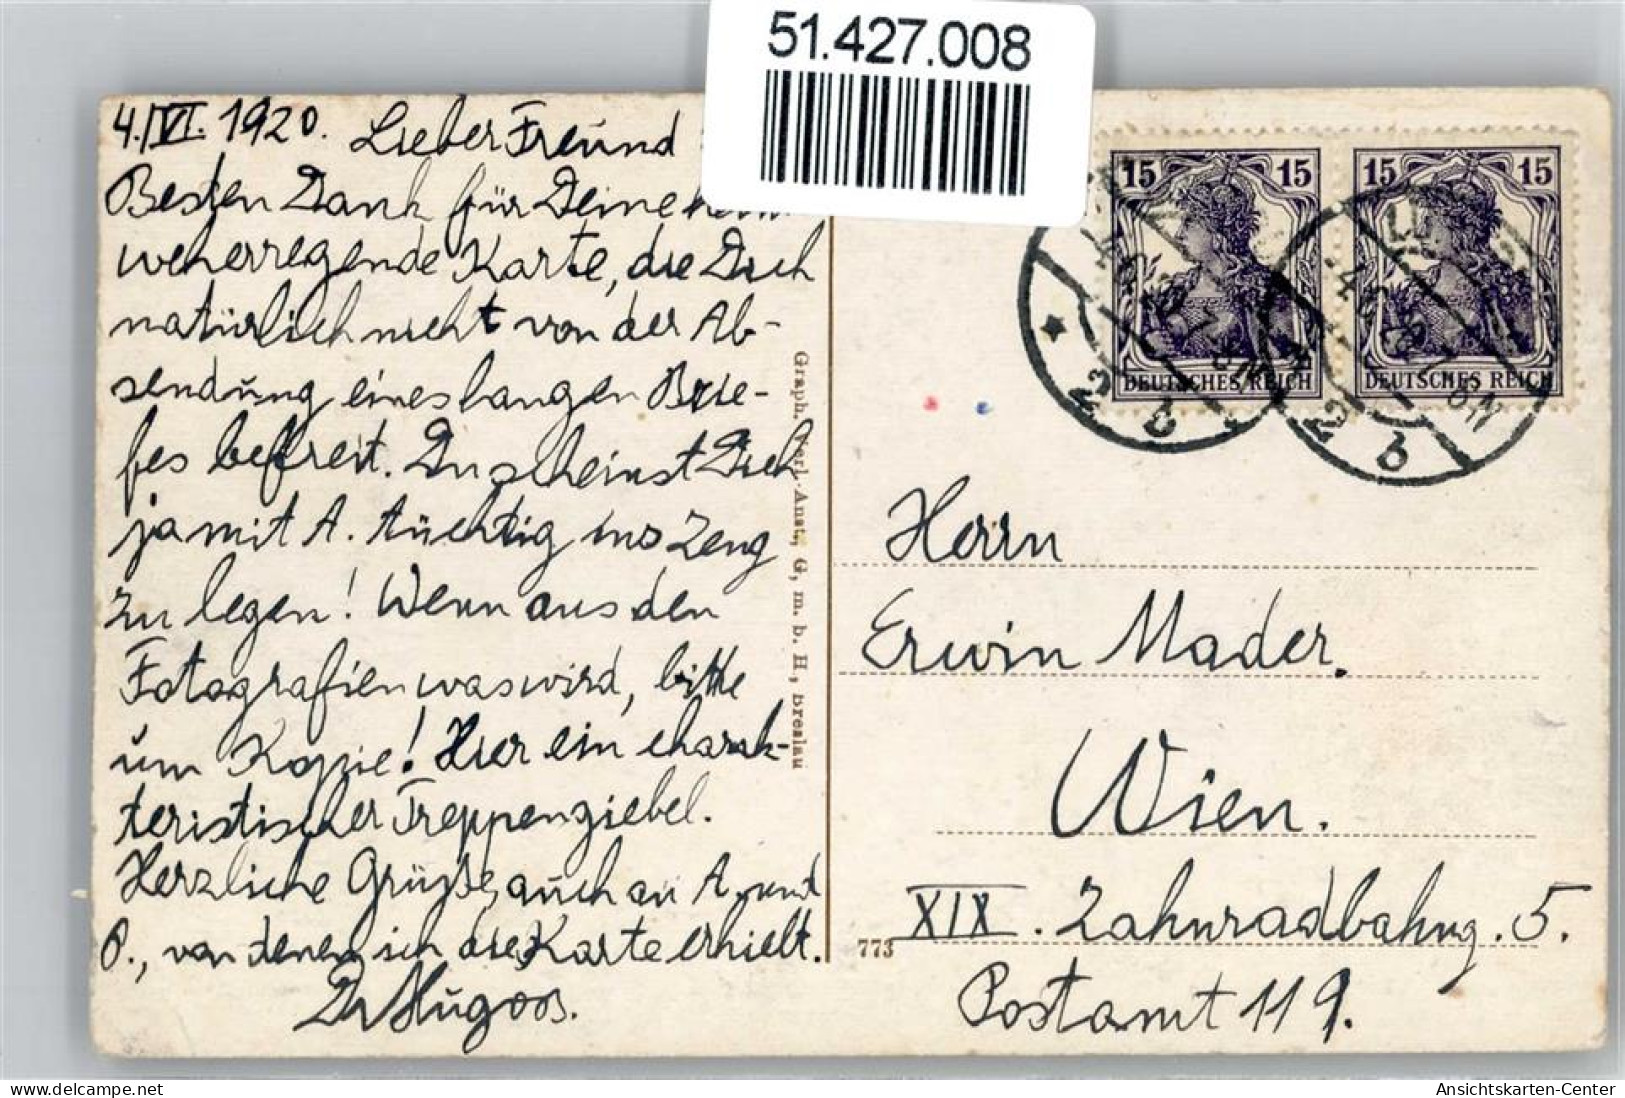 51.427.008
4./VI. 1920. Lieber Freund
Besten Dank für Deine heim-
weherregende Karte, die Dich
natürlich nicht von der Ab-
sendung eines langen Brie-
fes befreit. Du scheinst Dich
ja mit A. tüchtig ins Zeug
zu legen! Wenn aus den
Fotografien was wird, bitte
um Kopie! Hier ein charak-
teristischer Treppengiebel.
Herzliche Grüße, auch an A. und
O., von denen ich die Karte erhielt.
Graph. Verl.-Anst., G. m. b. H., Breslau
773
15 15
DEUTSCHES REICH
15 15
DEUTSCHES REICH
* 2 b
2 b
Herrn
Erwin Mader.
Wien.
XIX. Zahnradbahng. 5.
Postamt 119.
Ansichtskarten-Center